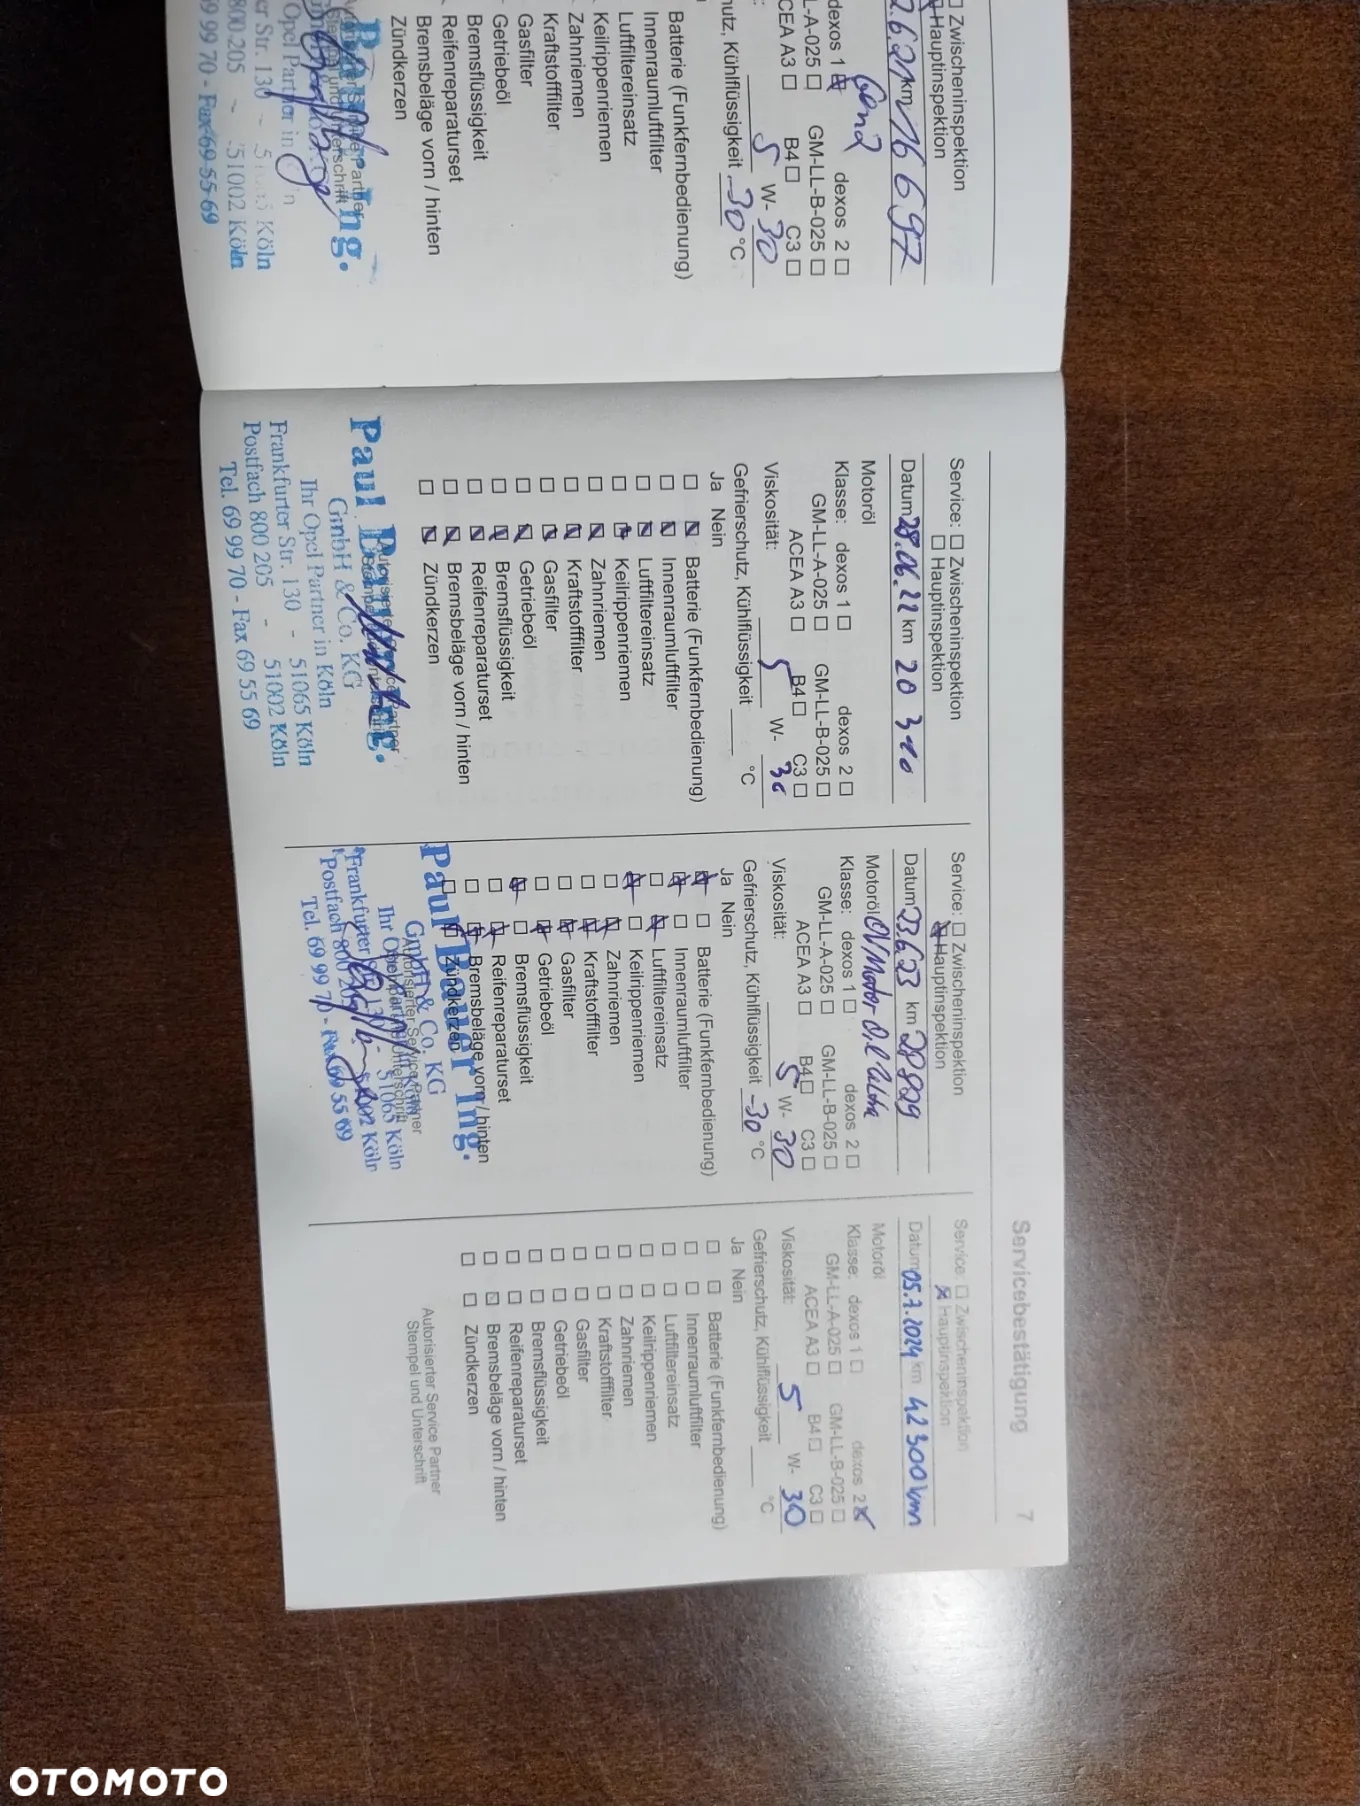 Zwischeninspektion
Hauptinspektion
km 16 697
dexos 1 dexos 2
GM-LL-B-025
ACEA A3 B4 C3
5 W- 30
Kühlflüssigkeit -30 °C
Batterie (Funkfernbedienung)
Innenraumluftfilter
Luftfiltereinsatz
Keilrippenriemen
Zahnriemen
Kraftstofffilter
Gasfilter
Getriebeöl
Bremsflüssigkeit
Reifenreparaturset
Bremsbeläge vorn / hinten
Zündkerzen
51002 Köln
Servicebestätigung 7
Service: Zwischeninspektion
Hauptinspektion
Datum 28.06.22 km 20 310
Motoröl
Klasse: dexos 1 dexos 2
GM-LL-A-025 GM-LL-B-025
ACEA A3 B4 C3
Viskosität: 5 W- 30
Gefrierschutz, Kühlflüssigkeit °C
Ja Nein
Batterie (Funkfernbedienung)
Innenraumluftfilter
Luftfiltereinsatz
Keilrippenriemen
Zahnriemen
Kraftstofffilter
Gasfilter
Getriebeöl
Bremsflüssigkeit
Reifenreparaturset
Bremsbeläge vorn / hinten
Zündkerzen
Paul Bauer Ing.
GmbH & Co. KG
Ihr Opel Partner in Köln
Frankfurter Str. 130 - 51065 Köln
Postfach 800 205 - 51002 Köln
Tel. 69 99 70 - Fax 69 55 69
Service: Zwischeninspektion
Hauptinspektion
Datum 23.6.23 km 28 829
Motoröl
Klasse: dexos 1 dexos 2
GM-LL-A-025 GM-LL-B-025
ACEA A3 B4 C3
Viskosität: 5 W- 30
Gefrierschutz, Kühlflüssigkeit -30 °C
Ja Nein
Batterie (Funkfernbedienung)
Innenraumluftfilter
Luftfiltereinsatz
Keilrippenriemen
Zahnriemen
Kraftstofffilter
Gasfilter
Getriebeöl
Bremsflüssigkeit
Reifenreparaturset
Bremsbeläge vorn / hinten
Zündkerzen
Paul Bauer Ing.
GmbH & Co. KG
Ihr Opel Partner in Köln
Frankfurter Str. 130 - 51065 Köln
Postfach 800 205 - 51002 Köln
Tel. 69 99 70 - Fax 69 55 69
Service: Zwischeninspektion
Hauptinspektion
Datum 05.7.2024 km 42 300 km
Motoröl
Klasse: dexos 1 dexos 2
GM-LL-A-025 GM-LL-B-025
ACEA A3 B4 C3
Viskosität: 5 W- 30
Gefrierschutz, Kühlflüssigkeit °C
Ja Nein
Batterie (Funkfernbedienung)
Innenraumluftfilter
Luftfiltereinsatz
Keilrippenriemen
Zahnriemen
Kraftstofffilter
Gasfilter
Getriebeöl
Bremsflüssigkeit
Reifenreparaturset
Bremsbeläge vorn / hinten
Zündkerzen
Autorisierter Service Partner
Stempel und Unterschrift
OTOMOTO